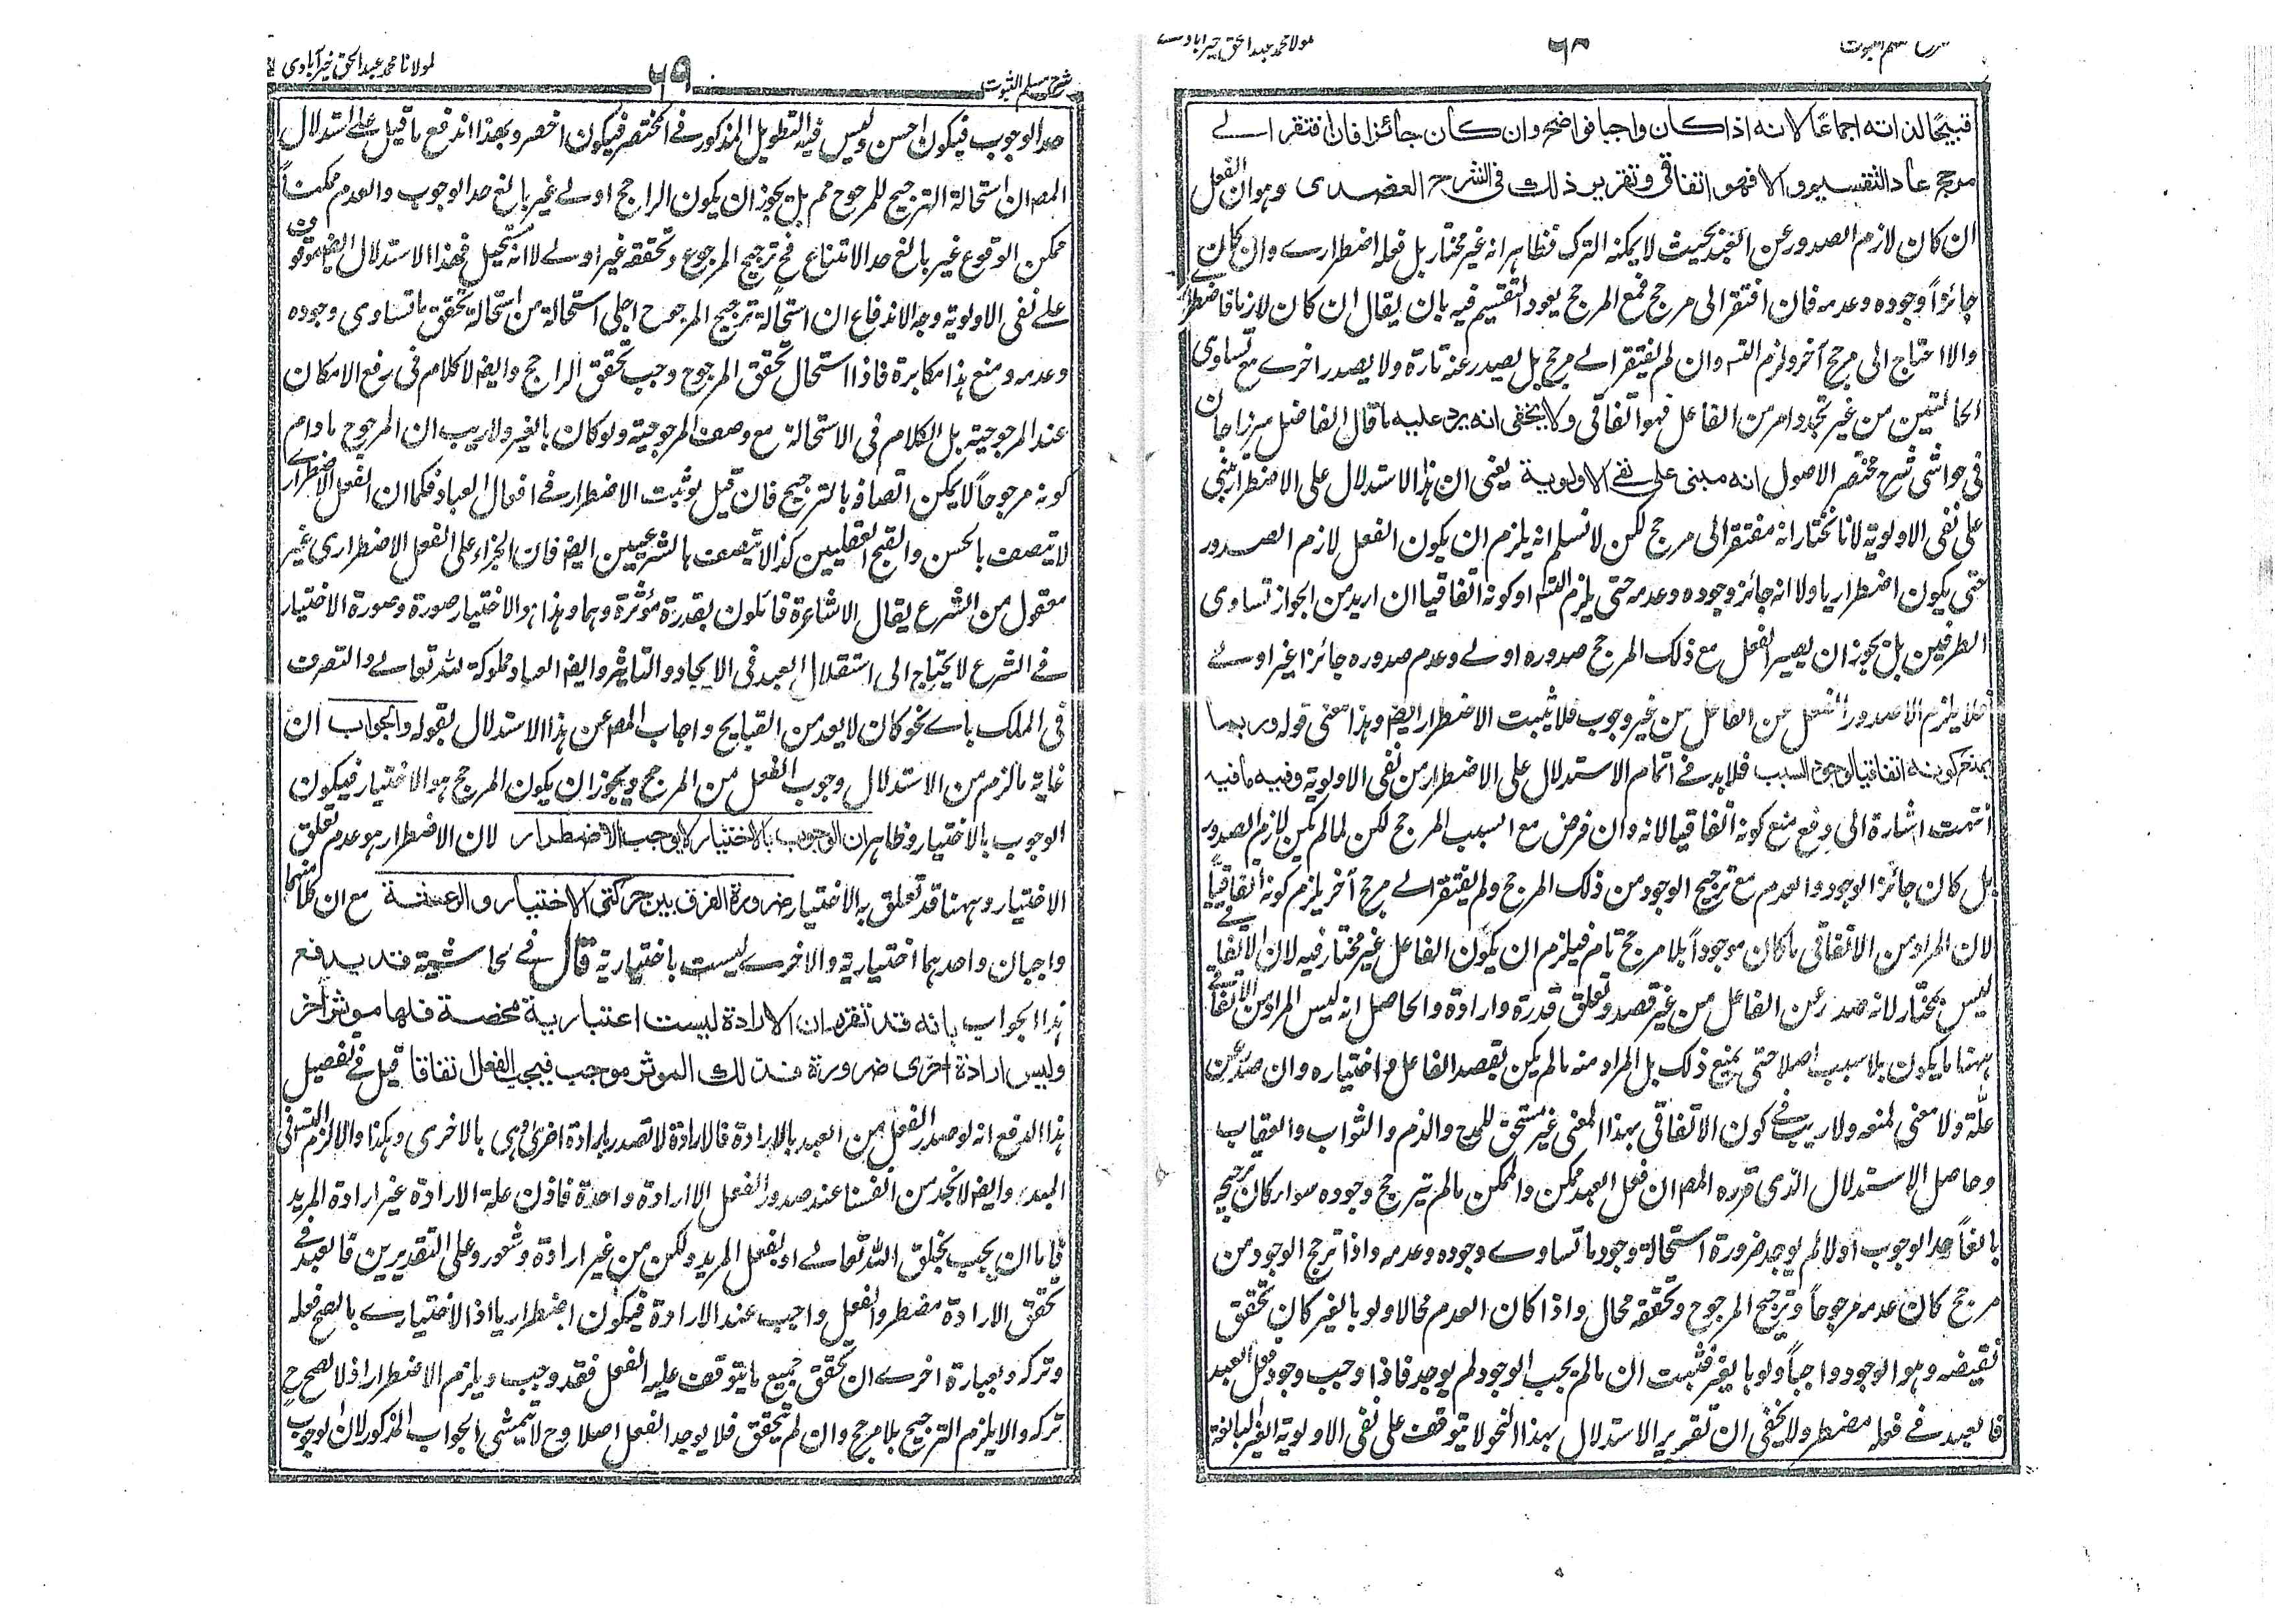 شرح مسلم الثبوت
٦٨
مولانا محمد عبدالحق خیرآبادی
قبيحًا لذاته اجماعًا لانه اذا كان واجبا فواضح وان كان جائزا فان افتقر الے
مرجح عاد التقسيم والا فهو اتفاقی وتقرير ذلك فی الشرح العضدی وهو ان الفعل
ان كان لازم الصدور عن العبد بحيث لا يمكنه الترك فظاهر انه غير مختار بل فعله اضطراری وان كان
جائزاً وجوده وعدمه فان افتقر الی مرجح فمع المرجح يعود التقسيم فيه بان يقال ان كان لازما فاضطراری
والا احتاج الی مرجح آخر ولزم التسـ وان لم يفتقر الے مرجح بل يصدر عنه تارة ولا يصدر اخرے مع تساوی
الحالتين من غير تجدد امر من الفاعل فهو اتفاقی ولا يخفی انه يرد عليه ما قال الفاضل ميرزا جان
فی حواشی شرح مختصر الاصول انه مبنی علی نفے الاولوية يعنی ان هذا الاستدلال علی الاضطرار يبنی
علی نفی الاولوية لانا نختار انه مفتقر الی مرجح لكن لا نسلم انه يلزم ان يكون الفعل لازم الصدور
حتی يكون اضطراريا ولا انه جائز وجوده وعدمه حتی يلزم التسـ او كونه اتفاقيا ان اريد من الجواز تساوی
الطرفين بل يجوز ان يصير الفعل مع ذلك المرجح صدوره اولے وعدم صدوره جائزا غير اولے
فلا يلزم الا صدور الفعل عن الفاعل من غير وجوب فلا يثبت الاضطرار ايضـ وهذا معنی قوله وربما
يمنع كونه اتفاقيا لوجود السبب فلا بد فے اتمام الاستدلال علی الاضطرار من نفی الاولوية وفيه ما فيه
انتهت اشارة الی دفع منع كونه اتفاقيا لانه وان فرض مع السبب المرجح لكن لما لم يكن لازم الصدور
بل كان جائز الوجود والعدم مع ترجيح الوجود من ذلك المرجح ولم يفتقر الے مرجح آخر يلزم كونه اتفاقياً
لان المراد من الاتفاقی ما كان موجوداً بلا مرجح تام فيلزم ان يكون الفاعل غير مختار فيه لان الاتفاقے
ليس بمختار لانه صدر عن الفاعل من غير قصد وتعلق قدرة وارادة والحاصل انه ليس المراد من الاتفاقے
ههنا ما يكون بلا سبب اصلا حتی يمنع ذلك بل المراد منه ما لم يكن بقصد الفاعل واختياره وان صدر عن
علّة ولا معنی لمنعه ولا ريب فے كون الاتفاقی بهذا المعنی غير مستحق للمدح والذم والثواب والعقاب
وحاصل الاستدلال الذی قرره المصـ ان فعل العبد ممكن والممكن ما لم يترجح وجوده سواء كان ترجيحه
بالغاً حد الوجوب اولا لم يوجد ضرورة استحالة وجود ما تساوے وجوده وعدمه واذا ترجح الوجود من
مرجح كان عدمه مرجوحاً وترجيح المرجوح وتحققه محال واذا كان العدم محالا ولو بالغير كان تحقق
نقيضه وهو الوجود واجباً ولو بالغير فثبت ان ما لم يجب الوجود لم يوجد فاذا وجب وجود فعل العبد
فالعبد فے فعله مضطر ولا يخفی ان تقرير الاستدلال بهذا النحو لا يتوقف علی نفی الاولوية الغير البالغة
شرح مسلم الثبوت
٦٩
مولانا محمد عبدالحق خیرآبادی
حد الوجوب فيكون احسن وليس فيه التطويل المذكور فے المختصر فيكون اخصر وبهذا اندفع ما قيل علے استدلال
المصـ ان استحالة الترجيح للمرجوح مم بل يجوز ان يكون الراجح اولے غير بالغ حد الوجوب والعدم ممكناً
ممكن الوقوع غير بالغ حد الامتناع فح ترجيح المرجوح وتحققه غير اولے لا انه مستحيل فهذا الاستدلال ايضـ موقوف
علے نفی الاولوية وجه الاندفاع ان استحالة ترجيح المرجوح اجلی استحالة من استحالة تحقق ما تساوی وجوده
وعدمه ومنع هذا مكابرة فاذا استحال تحقق المرجوح وجب تحقق الراجح وايضـ لا كلام فی رفع الامكان
عند المرجوحية بل الكلام فی الاستحالة مع وصف المرجوحية ولو كان بالغير ولا ريب ان المرجوح ما دام
كونه مرجوحاً لا يمكن اتصافه بالترجيح فان قيل لو ثبت الاضطرار فے افعال العباد فكما ان الفعل الاضطرارے
لا يتصف بالحسن والقبح العقليين كذا لا يتصف بالشرعيين ايضـ فان الجزاء علی الفعل الاضطراری غير
معقول من الشرع يقال الاشاعرة قائلون بقدرة مؤثرة وهما وهذا هو الاختيار صورة وصورة الاختيار
فے الشرع لا يحتاج الی استقلال العبد فی الايجاد والتاثير وايضـ العباد مملوكة لله تعالے والتصرف
فی الملك بائے نحو كان لا يعد من القبايح واجاب المصـ عن هذا الاستدلال بقوله والجواب ان
غاية ما لزم من الاستدلال وجوب الفعل من المرجح ويجوز ان يكون المرجح هو الاختيار فيكون
الوجوب بالاختيار وظاهر ان الوجوب بالاختيار لا يوجب الاضطرار لان الاضطرار هو عدم تعلق
الاختيار وههنا قد تعلق به الاختيار ضرورة الفرق بين حركتی الاختيار والرعشة مع ان كلًا منهما
واجبان واحدهما اختيارية والاخرے ليست باختيارية قال فے الحاشية قد يدفع
هذا الجواب بانه قد تقرر ان الارادة ليست اعتبارية محضة فلها موثر آخر
وليس ارادة اخری ضرورة فذلك الموثر موجب فيجب الفعل اتفاقا قيل فے تفصيل
هذا الدفع انه لو صدر الفعل من العبد بالارادة فالارادة لا تصدر بارادة اخری وهی بالاخری وهكذا والا لزم التسـ فی
المبدء وايضـ لا نجد من انفسنا عند صدور الفعل الا ارادة واحدة فاذن علة الارادة غير ارادة المريد
فاما ان يجب بخلق الله تعالے او بفعل المريد ولكن من غير ارادة وشعور وعلی التقديرين فالعبد فے
تحقق الارادة مضطر والفعل واجب عند الارادة فيكون اضطراريا اذ الاختيارے ما يصح فعله
وتركه وبعبارة اخرے ان تحقق جميع ما يتوقف عليه الفعل فقد وجب ويلزم الاضطرار اذ لا يصح ح
تركه والا يلزم الترجيح بلا مرجح وان لم يتحقق فلا يوجد الفعل اصلا وح لا يتمشی الجواب المذكور لان لوجوب